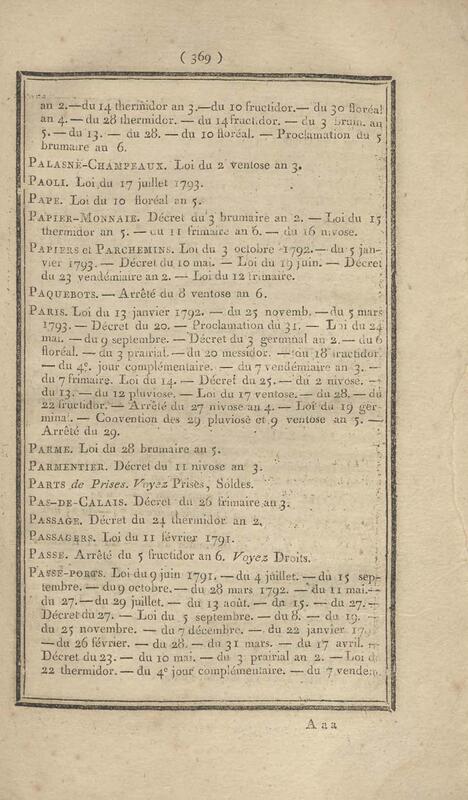 ( 369 )
an 2. — du 14 thermidor an 3. — du 10 fructidor. — du 30 floréal
an 4. — du 28 thermidor. — du 14 fructidor. — du 3 brum. an
5. — du 13. — du 28. — du 10 floréal. — Proclamation du 5
brumaire au 6.
PALASNE-CHAMPEAUX. Loi du 2 ventose an 3.
PAOLI. Loi du 17 juillet 1793.
PAPE. Loi du 10 floréal an 5.
PAPIER-MONNAIE. Décret du 3 brumaire an 2. — Loi du 15
thermidor an 5. — du 11 frimaire an 6. — du 16 nivose.
PAPIERS et PARCHEMINS. Loi du 3 octobre 1792. — du 5 jan-
vier 1793. — Décret du 10 mai. — Loi du 19 juin. — Décret
du 23 vendémiaire an 2. — Loi du 12 frimaire.
PAQUEBOTS. — Arrêté du 8 ventose an 6.
PARIS. Loi du 13 janvier 1792. — du 25 novemb. — du 5 mars
1793. — Décret du 20. — Proclamation du 31. — Loi du 24
mai. — du 9 septembre. — Décret du 3 germinal an 2. — du 6
floréal. — du 3 prairial. — du 20 messidor. — du 18 fructidor.
— du 4e. jour complémentaire. — du 7 vendémiaire an 3. —
du 7 frimaire. Loi du 14. — Décret du 25. — du 2 nivose. —
du 13. — du 12 pluviose. — Loi du 17 ventose. — du 28. — du
22 fructidor. — Arrêté du 27 nivose an 4. — Loi du 19 ger-
minal. — Convention des 29 pluviose et 9 ventose an 5. —
Arrêté du 29.
PARME. Loi du 28 brumaire an 5.
PARMENTIER. Décret du 11 nivose an 3.
PARTS de Prises. Voyez Prises, Soldes.
PAS-DE-CALAIS. Décret du 26 frimaire an 3.
PASSAGE. Décret du 24 thermidor an 2.
PASSAGERS. Loi du 11 février 1791.
PASSE. Arrêté du 5 fructidor an 6. Voyez Droits.
PASSE-PORTS. Loi du 9 juin 1791. — du 4 juillet. — du 15 sep-
tembre. — du 9 octobre. — du 28 mars 1792. — du 11 mai. —
du 27. — du 29 juillet. — du 13 août. — du 15. — du 27. —
Décret du 27. — Loi du 5 septembre. — du 8. — du 19. —
du 25 novembre. — du 7 décembre. — du 22 janvier
— du 26 février. — du 28. — du 31 mars. — du 17 avril. —
Décret du 23. — du 10 mai. — du 3 prairial an 2. — Loi du
22 thermidor. — du 4e jour complémentaire. — du 7 vendem.
A a a